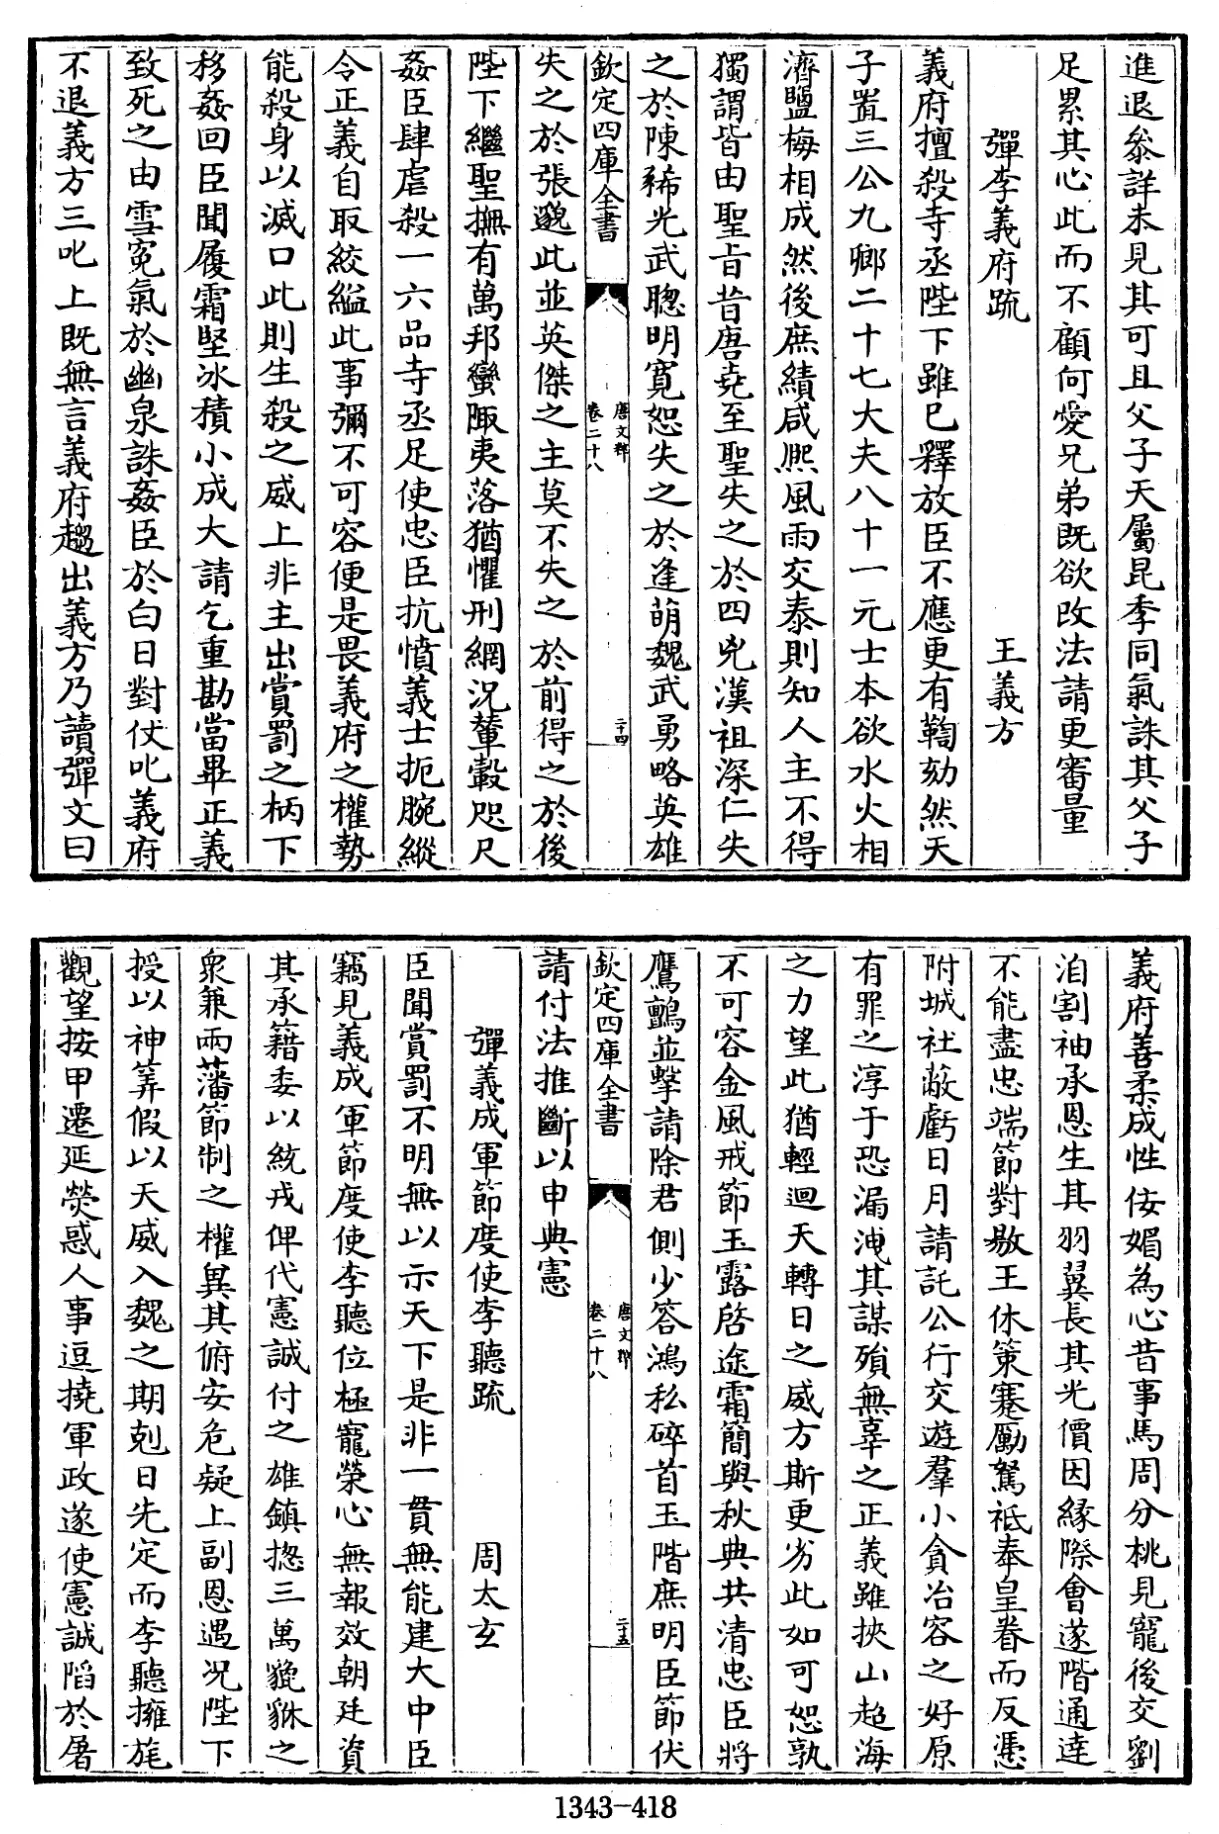 進退叅詳未見其可且父子天屬昆季同氣誅其父子
足累其心此而不顧何愛兄弟既欲改法請更審量
彈李義府疏 王義方
義府擅殺寺丞陛下雖已釋放臣不應更有鞫劾然天
子置三公九卿二十七大夫八十一元士本欲水火相
濟鹽梅相成然後庶績咸熙風雨交泰則知人主不得
獨謂皆由聖旨昔唐堯至聖失之於四兇漢祖深仁失
之於陳豨光武聰明寛恕失之於逄萌魏武勇略英雄
欽定四庫全書 唐文粹 卷二十八 二十四
失之於張邈此並英傑之主莫不失之於前得之於後
陛下繼聖撫有萬邦蠻陬夷落猶懼刑網況輦轂咫尺
姦臣肆虐殺一六品寺丞足使忠臣抗憤義士扼腕縱
令正義自取絞縊此事彌不可容便是畏義府之權勢
能殺身以滅口此則生殺之威上非主出賞罰之柄下
移姦回臣聞履霜堅冰積小成大請乞重勘當畢正義
致死之由雪寃氣於幽泉誅姦臣於白日對仗叱義府
不退義方三叱上既無言義府趨出義方乃讀彈文曰
義府善柔成性佞媚為心昔事馬周分桃見寵後交劉
洎割袖承恩生其羽翼長其光價因緣際會遂階通逹
不能盡忠端節對敭王休策蹇勵駑祗奉皇眷而反憑
附城社蔽虧日月請託公行交遊羣小貪冶容之好原
有罪之淳于恐漏洩其謀殞無辜之正義雖挾山超海
之力望此猶輕迴天轉日之威方斯更劣此如可恕孰
不可容金風戒節玉露啓途霜簡與秋典共清忠臣將
鷹鸇並擊請除君側少答鴻私碎首玉階庶明臣節伏
欽定四庫全書 唐文粹 卷二十八 二十五
請付法推斷以申典憲
彈義成軍節度使李聽疏 周太玄
臣聞賞罰不明無以示天下是非一貫無能建大中臣
竊見義成軍節度使李聽位極寵榮心無報效朝廷資
其承籍委以統戎俾代憲誠付之雄鎮揔三萬貔貅之
衆兼兩藩節制之權異其俯安危疑上副恩遇況陛下
授以神筭假以天威入魏之期剋日先定而李聽擁旄
觀望按甲遷延熒惑人事逗撓軍政遂使憲誠陷於屠
1343-418